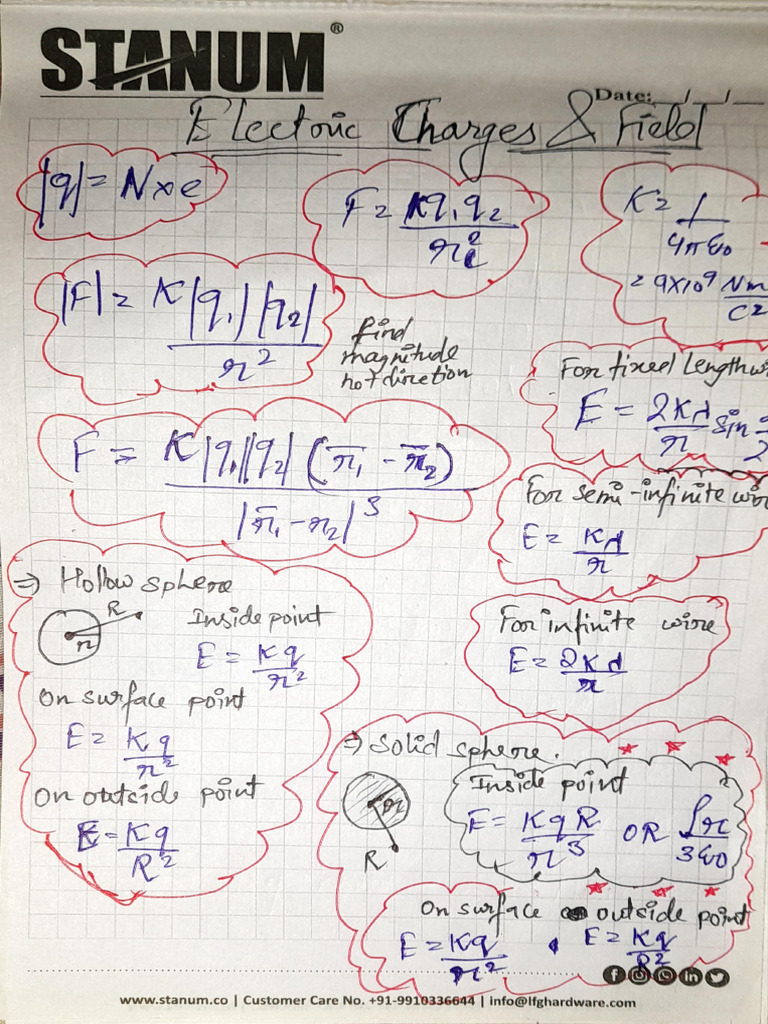 STANUM®
Date: __/__/__
Electric Charges & Field
|q| = N×e
F = Kq₁q₂/r²
K = 1/4πε₀
= 9×10⁹ Nm/C²
|F| = K|q₁||q₂|/r²
find
magnitude
not direction
For fixed length wi
E = 2Kλ/r sin
F = K|q₁||q₂| (r̅₁ - r̅₂)/|r̅₁ - r₂|³
For semi-infinite wire
E = Kλ/r
⇒ Hollow sphere
R
r
Inside point
E = Kq/r²
On surface point
E = Kq/r²
On outside point
E = Kq/R²
For infinite wire
E = 2Kλ/r
⇒ Solid sphere.
r
R
Inside point
E = KqR/r³ OR ρr/3ε₀
On surface outside point
E = Kq/r² , E = Kq/R²
www.stanum.co | Customer Care No. +91-9910336644 | info@lfghardware.com